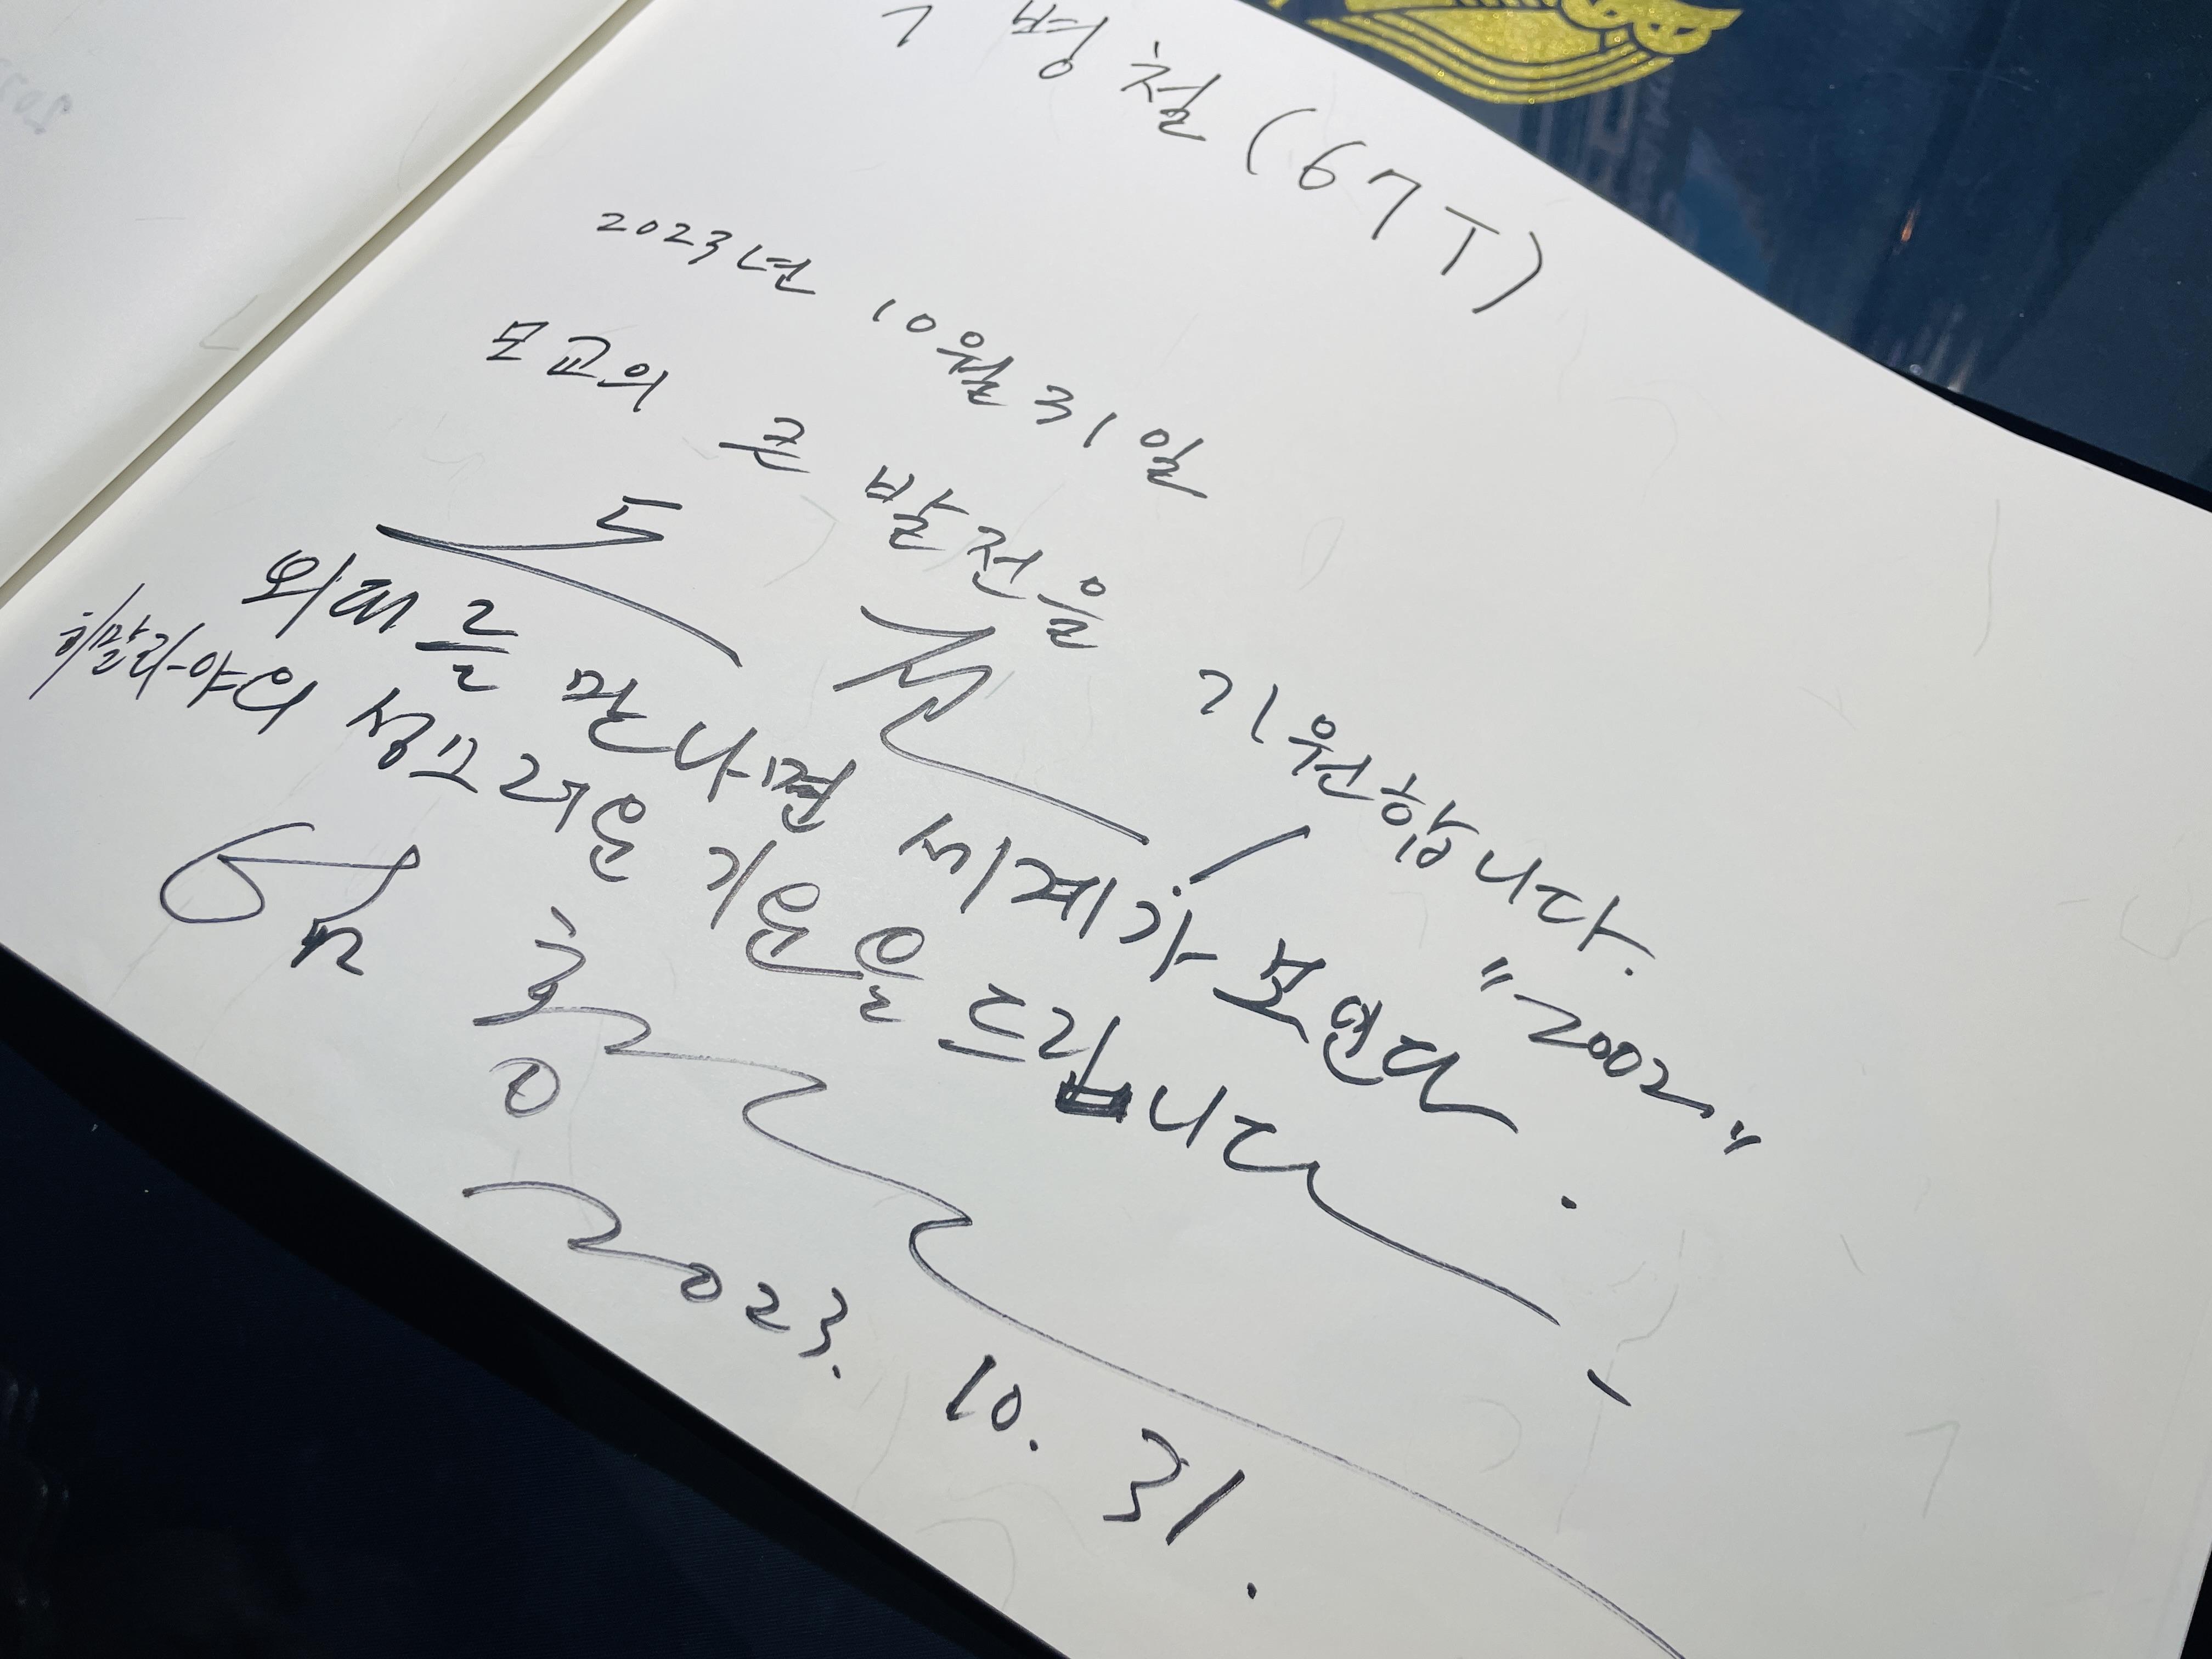 병철 (67T)
2023년 10월 31일
모교의 큰 발전을 기원합니다.
도전! "2002"
외대를 만나면 세계가 보인다.
히말라야의 성그러운 기운을 드립니다 -
엄홍길
2023. 10. 31.